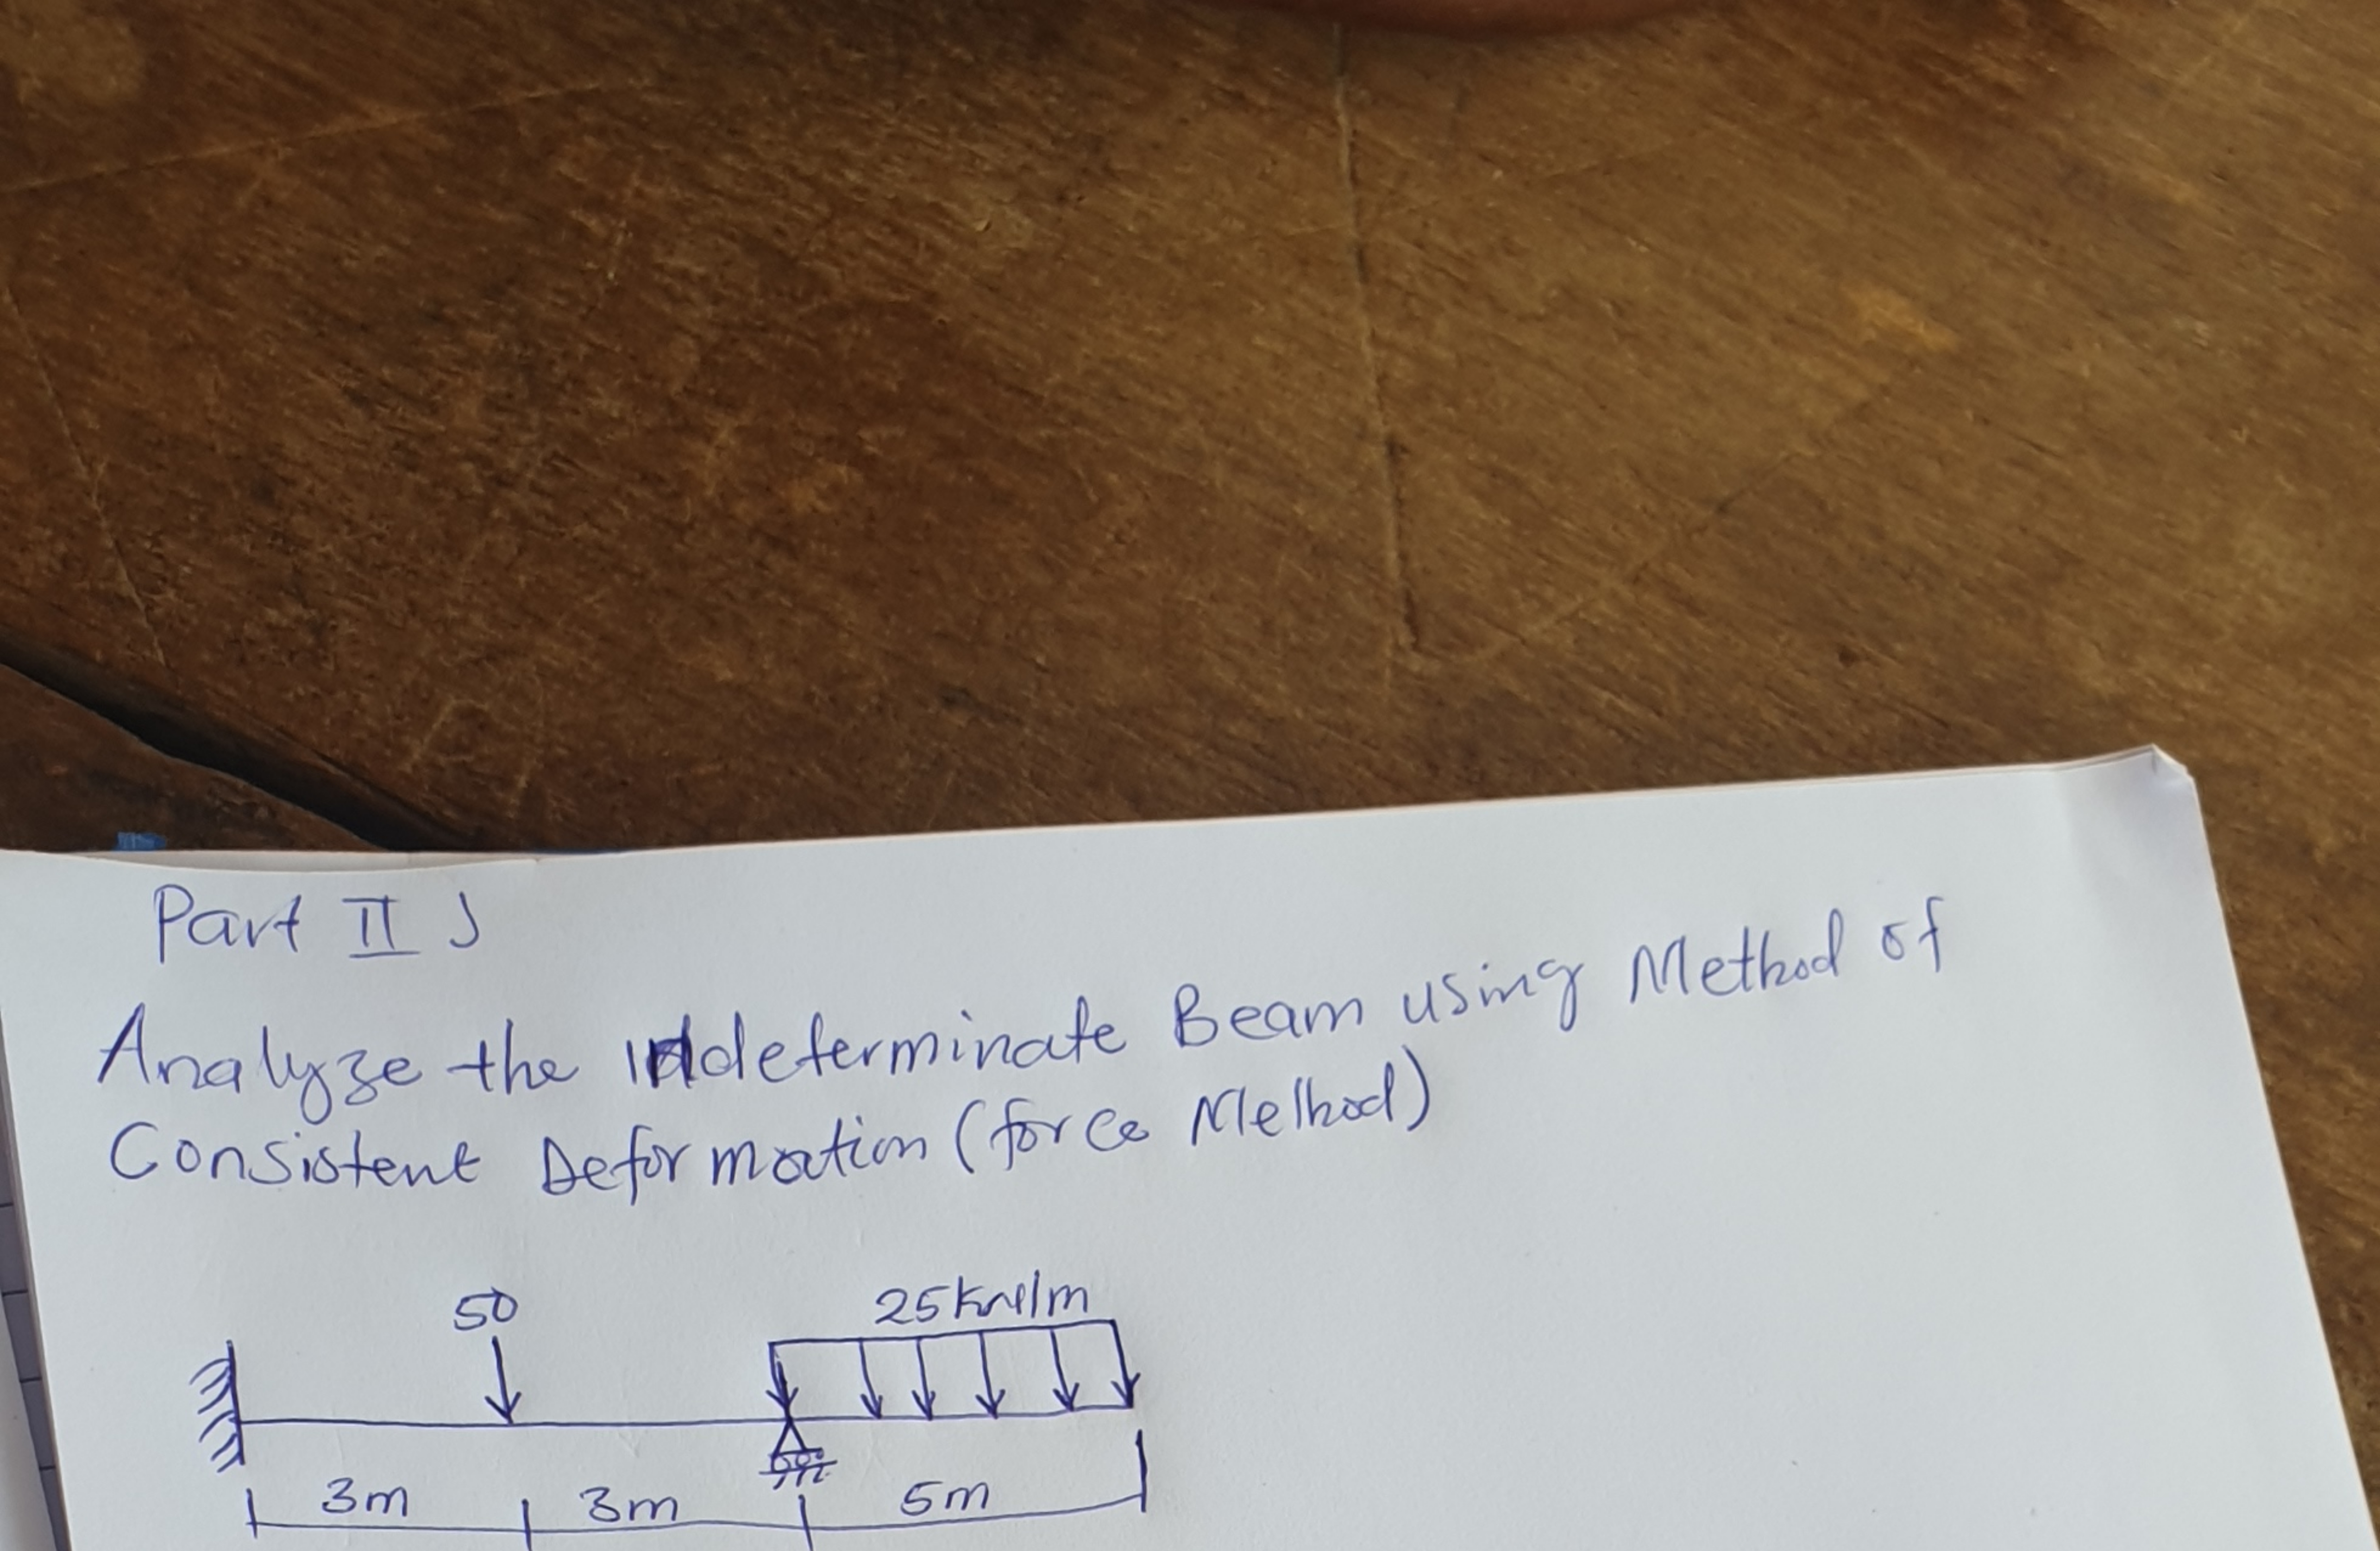 Part II
Analyze the indeterminate Beam using Method of
Consistent Deformation (force Method)
50
25kN/m
3m 3m 5m